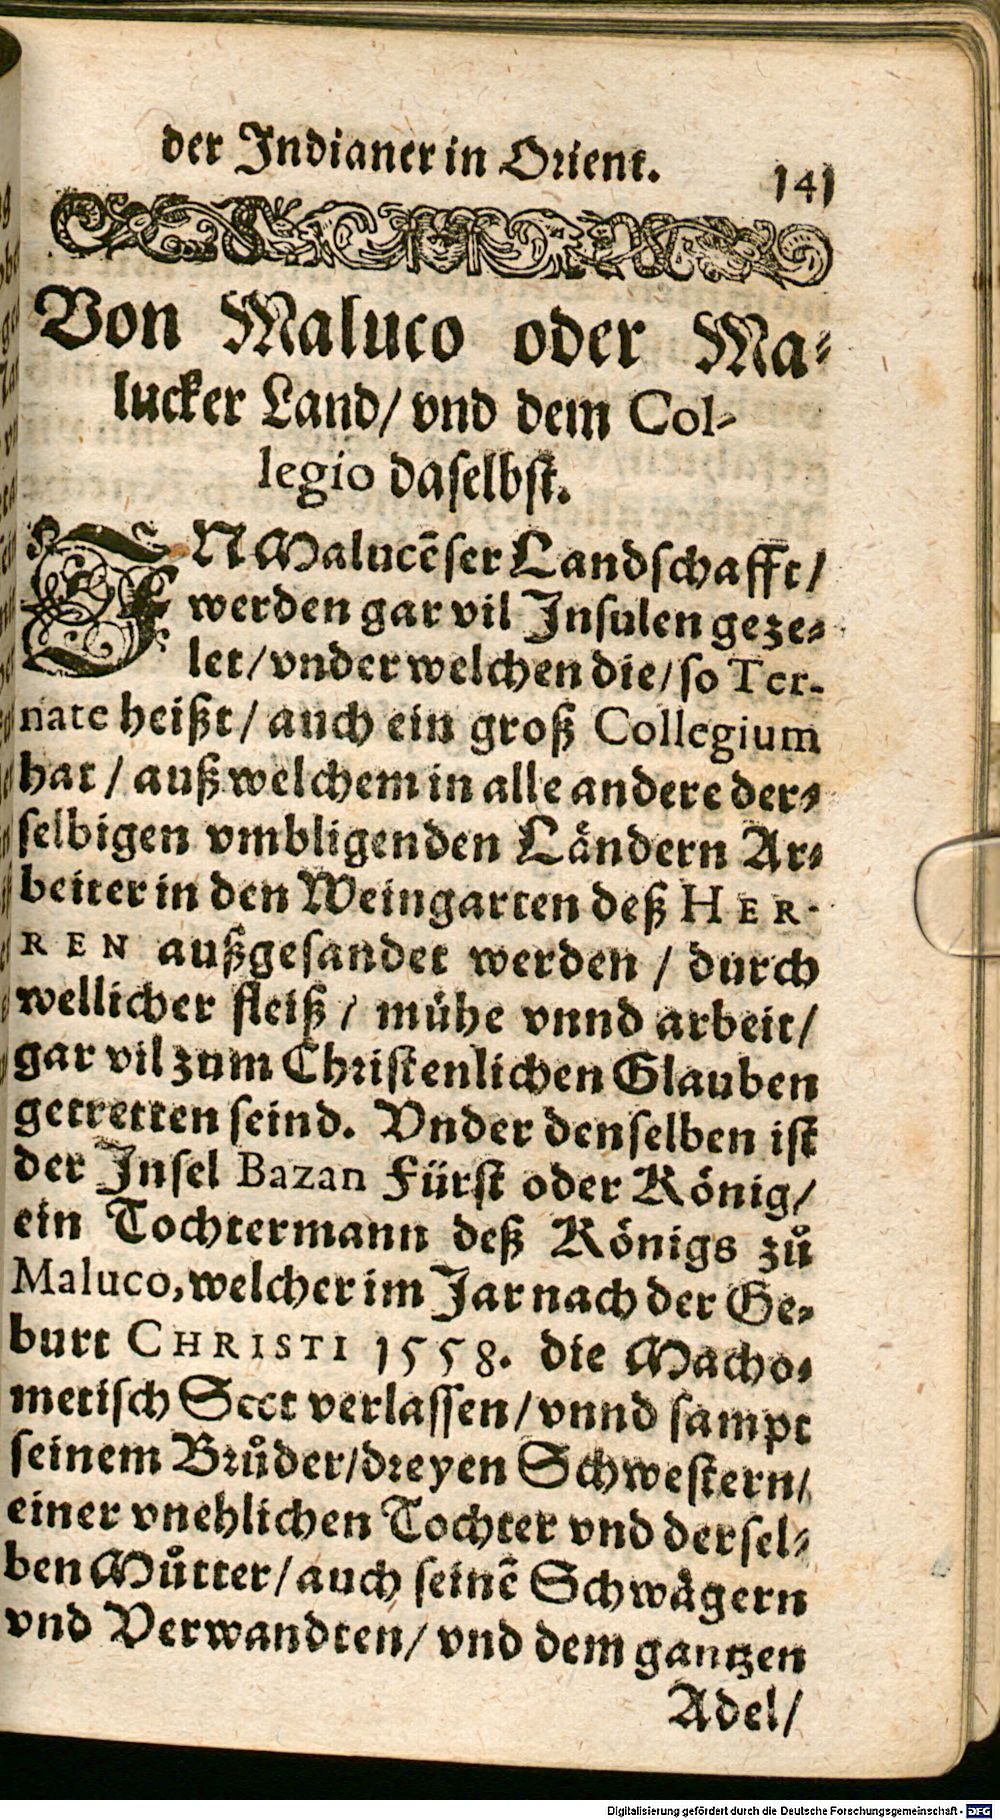 der Indianer in Orient. 141
Von Maluco oder Ma-
lucker Land/ vnd dem Col-
legio daselbst.
IN Malucẽser Landschafft/
werden gar vil Insulen geze-
let/ vnder welchen die/ so Ter-
nate heißt/ auch ein groß Collegium
hat/ auß welchem in alle andere der-
selbigen vmbligenden Ländern Ar-
beiter in den Weingarten deß HER-
REN außgesandet werden/ durch
wellicher fleiß/ mühe vnnd arbeit/
gar vil zum Christenlichen Glauben
getretten seind. Vnder denselben ist
der Insel Bazan Fürst oder König/
ein Tochtermann deß Königs zů
Maluco, welcher im Jar nach der Ge-
burt CHRISTI 1558. die Macho-
metisch Sect verlassen/ vnnd sampt
seinem Brůder/ dreyen Schwestern/
einer vnehlichen Tochter vnd dersel-
ben Můtter/ auch seinẽ Schwägern
vnd Verwandten/ vnd dem gantzen
Adel/
Digitalisierung gefördert durch die Deutsche Forschungsgemeinschaft - DFG